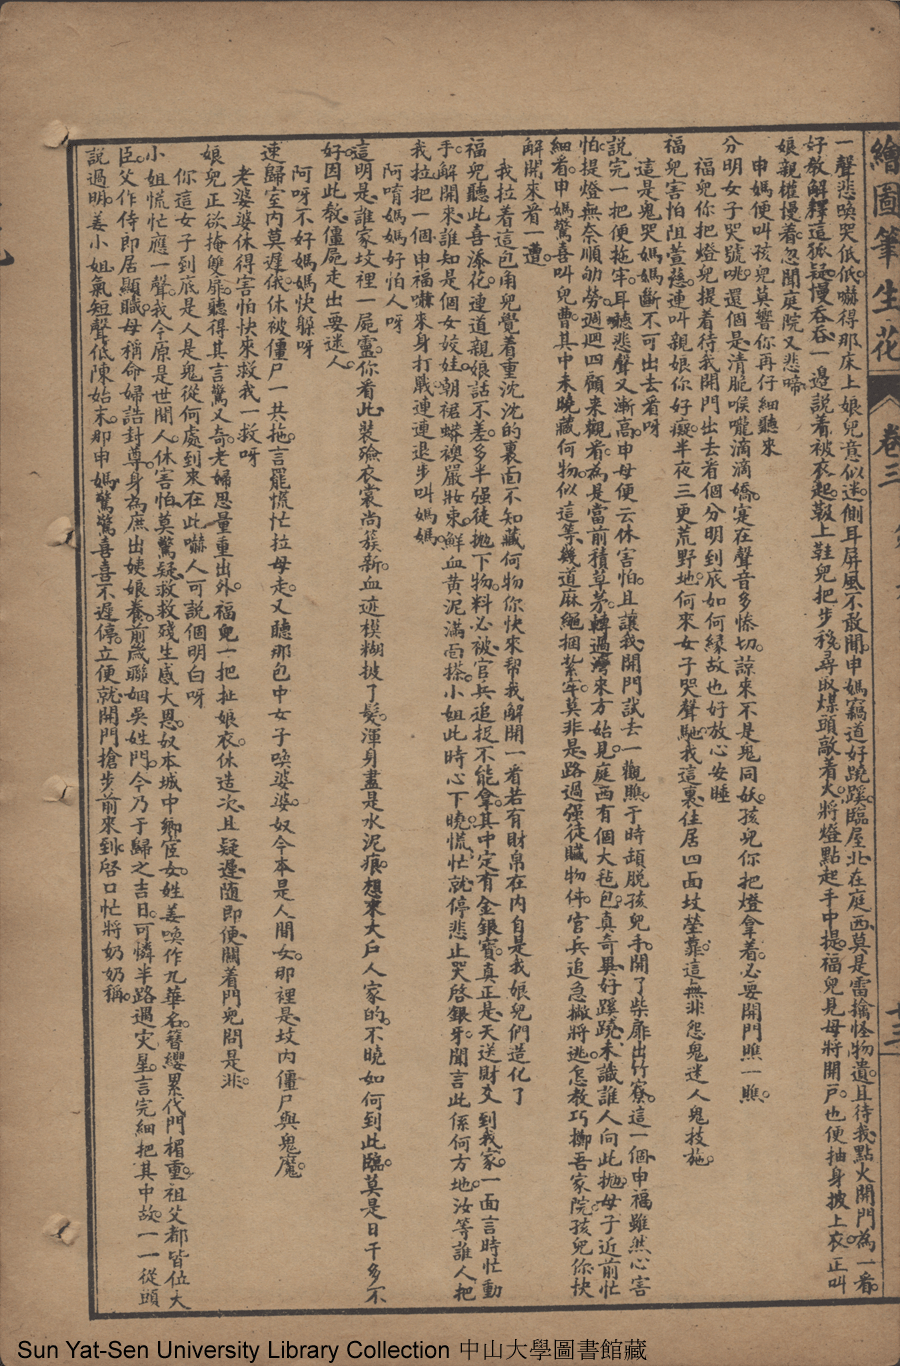 繪圖筆生花 卷三
一聲悲喚哭低低。嚇得那床上娘兒意似迷。側耳屏風不敢聞。申媽竊道好蹺蹊。臨屋北在庭西。莫是雷擒怪物遺。且待我點火開門為一看。
好教解釋這狐疑。慢吞吞。一邊說着被衣起。靸上鞋兒把步移。尋取煤頭敲着火。將燈點起手中提。福兒見母將開戶。也便抽身披上衣。正叫
娘親權慢着。忽聞庭院又悲啼。
申媽便叫孩兒莫響你再仔細聽來
分明女子哭號咷。還個是清脆喉嚨滴滴嬌。寔在聲音多慘切。諒來不是鬼同妖。孩兒你把燈拿着。必要開門瞧一瞧。
福兒你把燈兒提着待我開門出去看個分明到底如何緣故也好放心安睡
福兒害怕阻萱慈。連叫親娘你好癡。半夜三更荒野地。何來女子哭聲馳。我這裏住居四面坟塋靠。這無非怨鬼迷人鬼技施。
這是鬼哭媽媽斷不可出去看呀
說完一把便拖牢。耳聽悲聲又漸高。申母便云休害怕。且讓我開門試去一觀瞧。于時頡脫孩兒手。開了柴扉出竹寮。這一個申福雖然心害
怕。提燈無奈順劬勞。週迴四顧來觀看。為是當前積草茅。轉過灣來方始見。庭西有個大毡包。真奇異好蹊蹺。未識誰人向此拋。母子近前忙
細看。申媽驚喜叫兒曹。其中未曉藏何物。似這等幾道麻繩捆紮牢。莫非是路過強徒贓物件。官兵追急撇將逃。怎教巧擲吾家院。孩兒你快
解開來看一遭。
我拉着這包角兒覺着重沈沈的裏面不知藏何物你快來幫我解開一看若有財帛在內自是我娘兒們造化了
福兒聽此喜湊花。連道親娘話不差。多半强徒拋下物。料必被官兵追捉不能拿。其中定有金銀寶。真正是天送財爻到我家。一面言時忙動
手。解開來誰知是個女姣娃。朝裙蟒襖嚴妝束。鮮血黄泥滿面搽。小姐此時心下曉。慌忙就停悲止哭啓銀牙。聞言此係何方地。汝等誰人把
我拉。把一個申福嚇來身打戰。連連退步叫媽媽。
阿唷媽媽好怕人呀
這明是誰家坟裡一屍靈。你看此裝殮衣裳尚簇新。血迹模糊披了髮。渾身盡是水泥痕。想來大戶人家的。不曉如何到此臨。莫是日干多不
好。因此教僵屍走出要迷人。
阿呀不好媽媽快躲呀
速歸室内莫遲俄。休被僵尸一共拖。言罷慌忙拉母走。又聽那包中女子喚婆婆。奴今本是人間女。那裡是坟內僵尸與鬼魔。
老婆婆休得害怕快來救我一救呀
娘兒正欲掩雙扉。聽得其言驚又奇。老婦思量重出外。福兒一把扯娘衣。休造次且疑遲。隨即便關着門兒問是非。
你這女子到底是人是鬼從何處到來在此嚇人可說個明白呀
小姐慌忙應一聲。我今原是世間人。休害怕莫驚疑。救救殘生感大恩。奴本城中鄉宦女。姓姜喚作九華名。簪纓累代門楣重。祖父都皆位大
臣。父作侍郎居顯職。母稱命婦誥封尊。身為庶出姨娘養。前歲聯姻吳姓門。今乃于歸之吉日。可憐半路遇灾星。言完細把其中故。一一從頭
說過明。姜小姐氣短聲低陳始末。那申媽驚驚喜喜不遲停。立便就開門搶步前來到。啓口忙將奶奶稱。
Sun Yat-Sen University Library Collection 中山大學圖書館藏